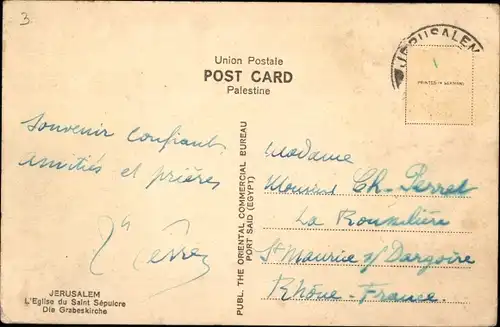 3
Union Postale
POST CARD
Palestine
JERUSALEM
PRINTED IN GERMANY
Souvenir confiant
amitiés et prières
PUBL. THE ORIENTAL COMMERCIAL BUREAU
PORT SAID (EGYPT)
Madame
Monsieur Ch. Perret
La
St Maurice s/ Dargoire
Rhône France
JERUSALEM
L'Eglise du Saint Sépulcre
Die Grabeskirche